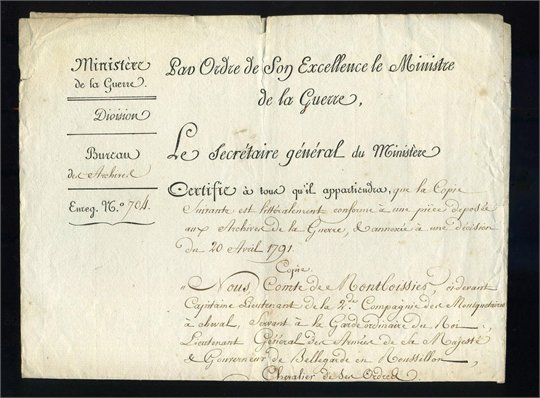 Ministère
de la Guerre.
Division
Bureau
des Archives
Enreg. N.º 704.
Par Ordre de Son Excellence le Ministre
de la Guerre,
Le Secrétaire général du Ministère
Certifie à tous qu'il appartiendra, que la Copie
Suivante est littéralement conforme à une pièce déposée
aux Archives de la Guerre, & annexée à une décision
du 20 Avril 1791.
Copie
"Nous, Comte de Montboissier, cidevant
Capitaine Lieutenant de la 2.de Compagnie des Mousquetaires
à cheval, Servant à la Garde ordinaire du Roi,
Lieutenant Général des Armées de Sa Majesté
& Gouverneur de Bellegarde en Roussillon,
Chevalier de Ses Ordres